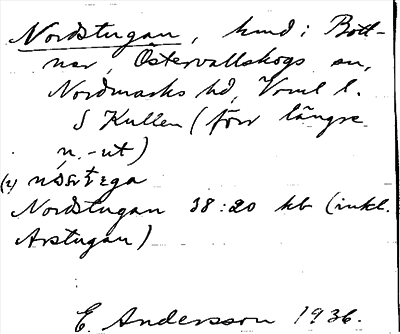 Nordstugan, hmd i Bott-
nar, Östervallskogs sn,
Nordmarks hd, Vrml l.
S Kullen (förr längre
n.-ut)
(2)
Nordstugan 38:20 kb (inkl.
Arstugan)
E. Andersson 1936.